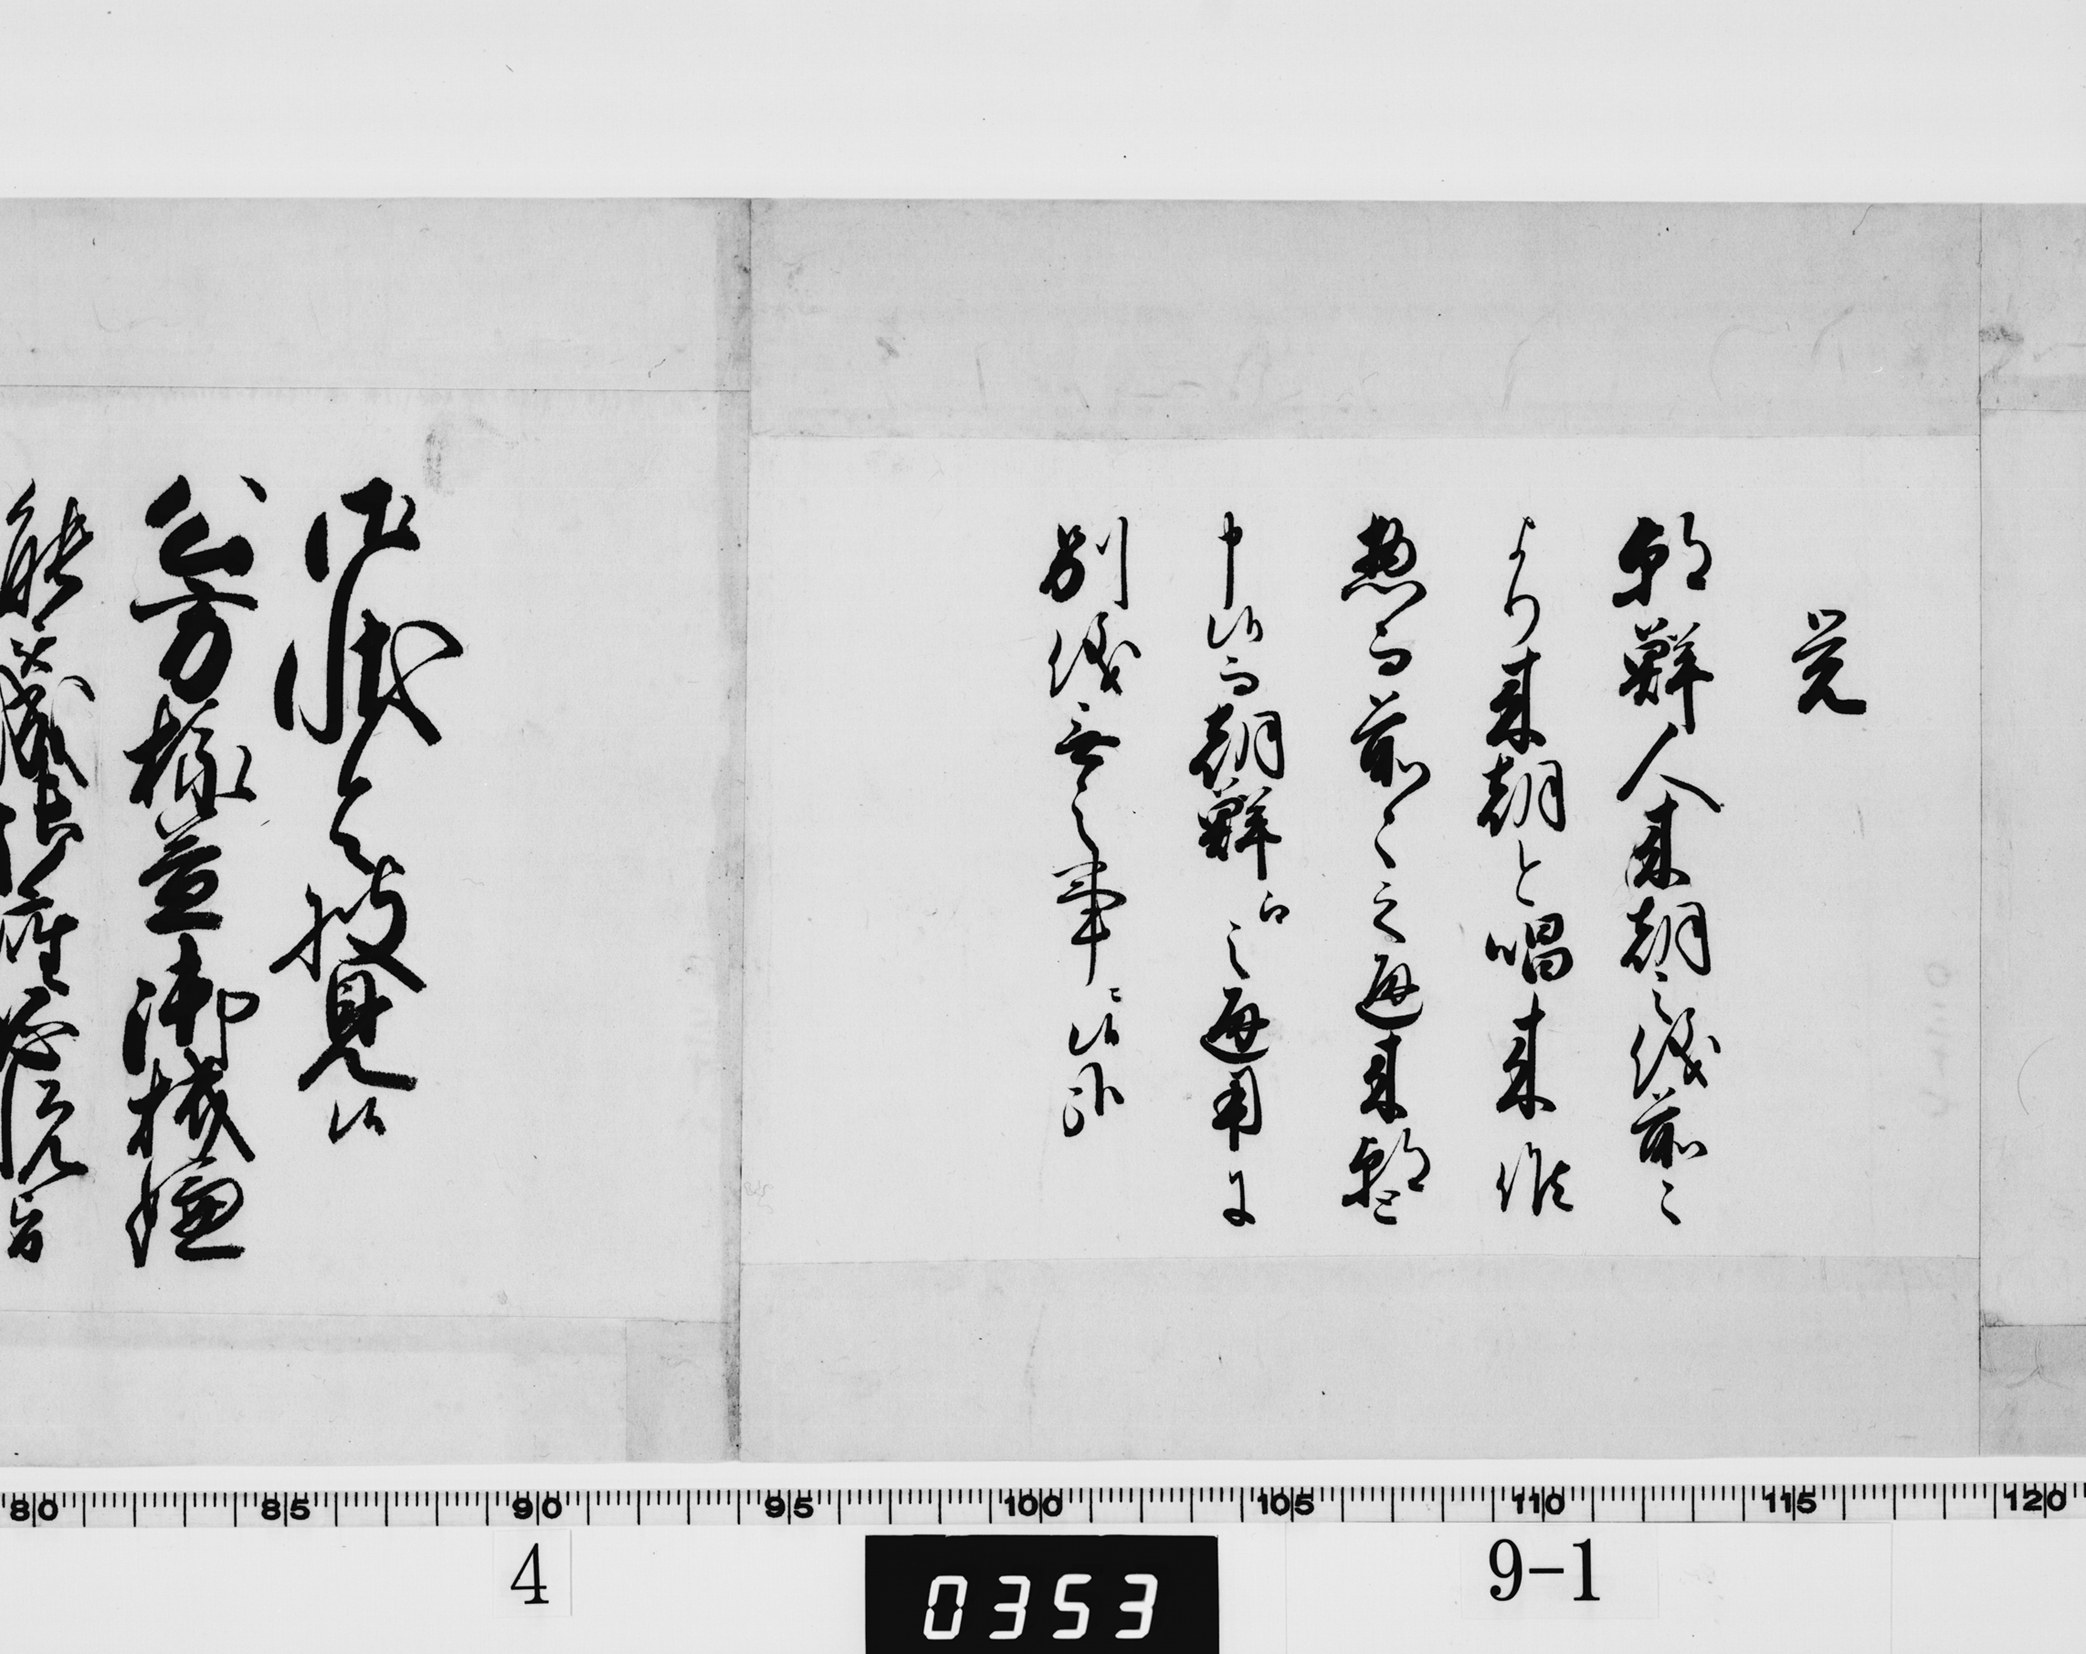 覚
朝鮮人来朝之儀前々
より来朝と唱来候
惣而前々之通来朝与
申候而朝鮮江之通用ニ
別儀無之事ニ候以上
御状令披見候
公方様益御機嫌
能
4
0353
9-1
80 85 90 95 100 105 110 115 120